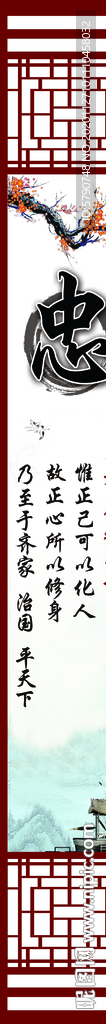 忠
惟正己可以化人
故正心所以修身
乃至于齐家 治国 平天下
昵图网 www.nipic.com